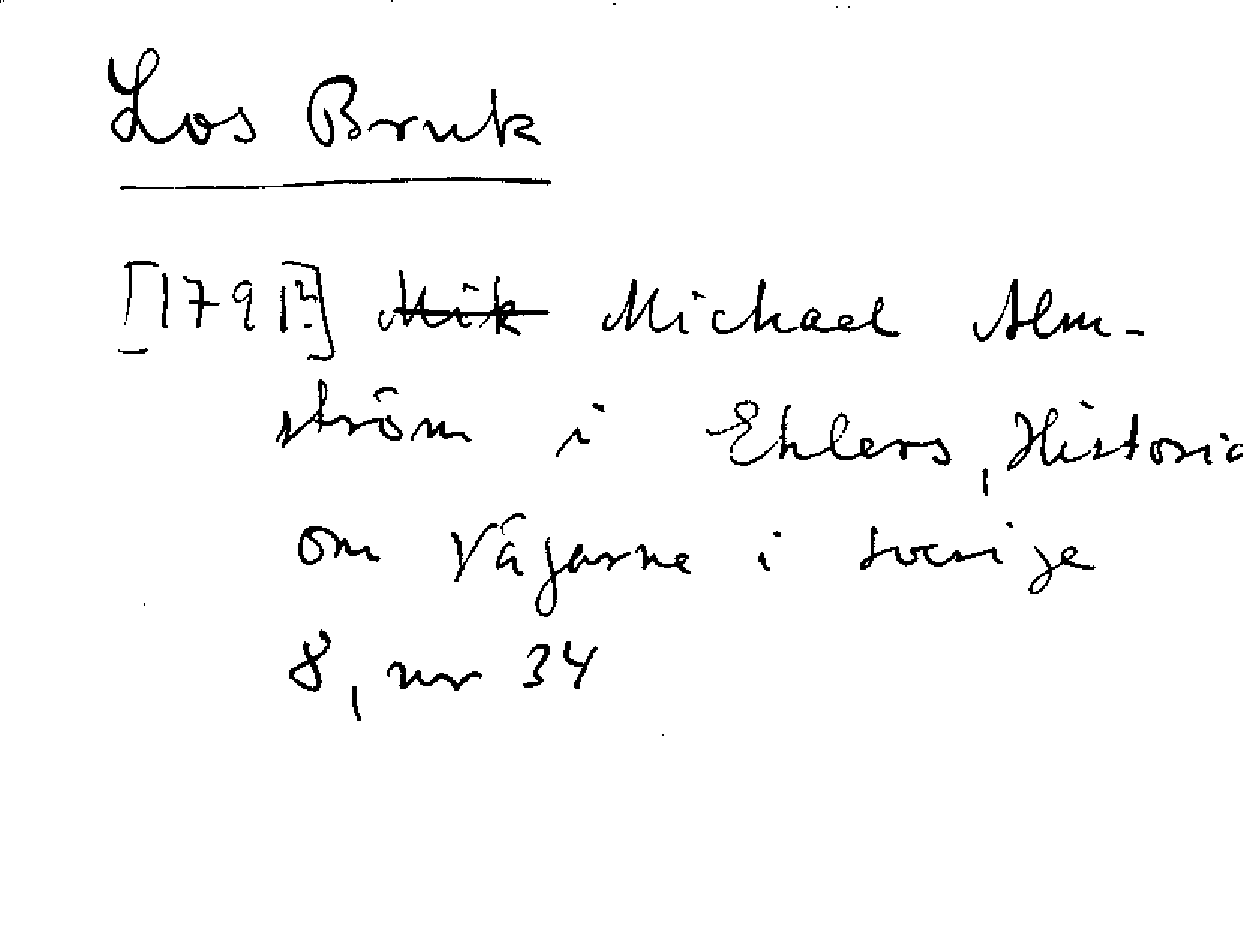 Los Bruk
[1791?] Mik Michael Alm-
ström i Ehlers, Historia
om Vägarne i Sverige
8, nr 34